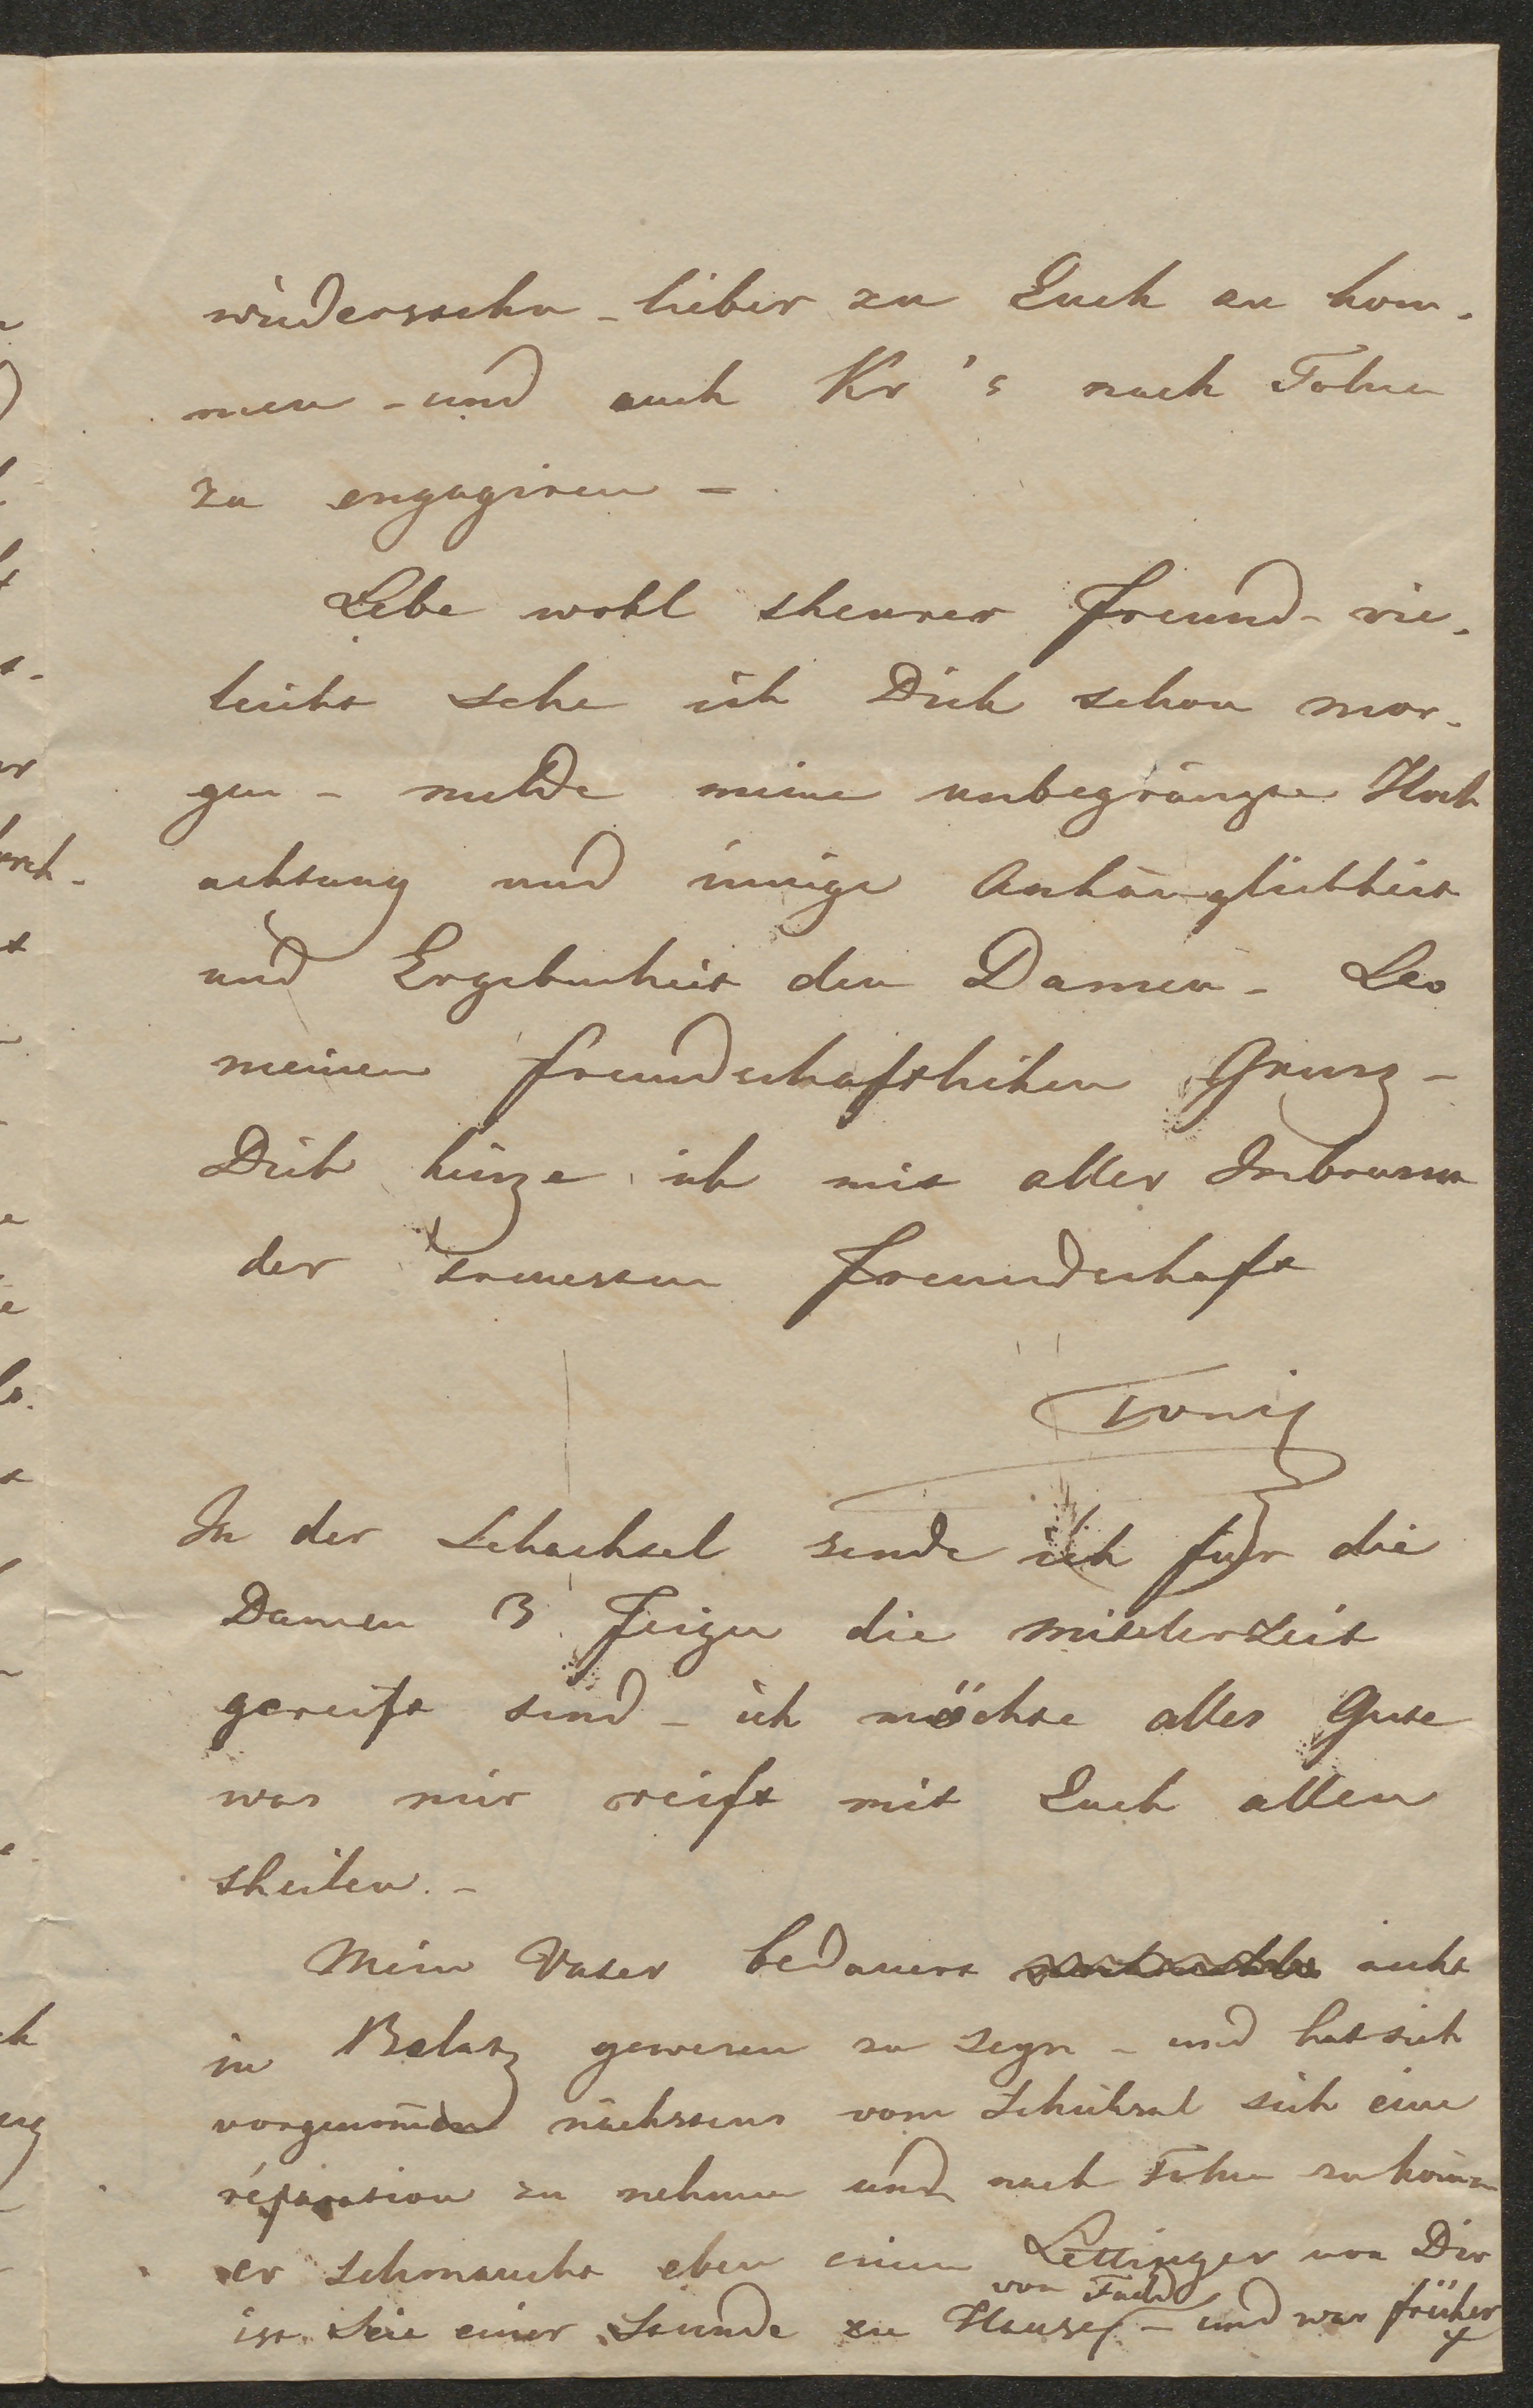 wiedersehn - lieber zu Euch zu kom-
men - und auch Kr's nach Tolna
zu engagiren -
Lebe wohl theurer Freund - vie-
leicht sehe ich Dich schon mor-
gen - melde meine unbegränzte Hoch
achtung und innige Anhänglichkeit
und Ergebenheit den Damen - Leo
meinen freundschaftlichen Grusz -
Dich küsze ich mit aller Inbrunst
der treuesten Freundschaft
Toni
In der Schachtel sende ich für die
Damen 3 Feigen die mittlerzeit
gereift sind - ich möchte alles Gute
was mir reift mit Euch allen
theilen. -
Mein Vater bedauert nicht
in gewesen zu seyn - und hat sich
vorgenomen nächstens vom Schiksal sich eine
réparation zu nehmen und nach zu komen
er schmaucht eben einen Lettinger von Dir
von
ist seit einer Stunde zu Hause - und war früher